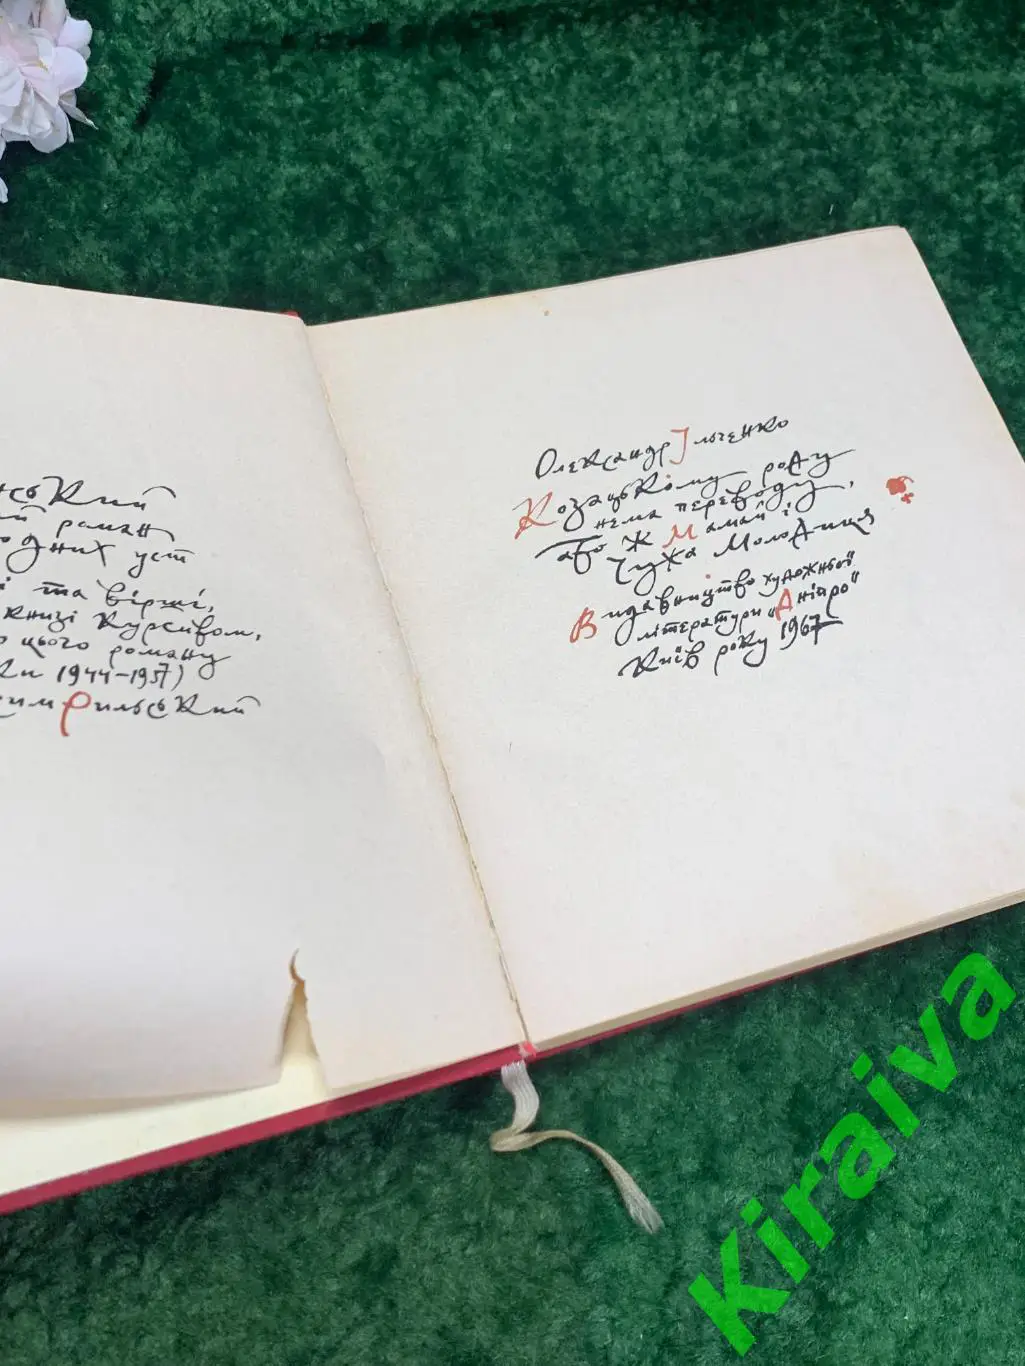 ський
ий роман
одних уст
і та вірші,
книзі курсивом,
о цього роману
ки 1944–1957)
сим Рильський
Олександр Ільченко
Козацькому роду
нема переводу,
або ж Мамай і
Чужа Молодиця
Видавництво художньої
літератури „Дніпро“
Київ року 1967
Kiraiva